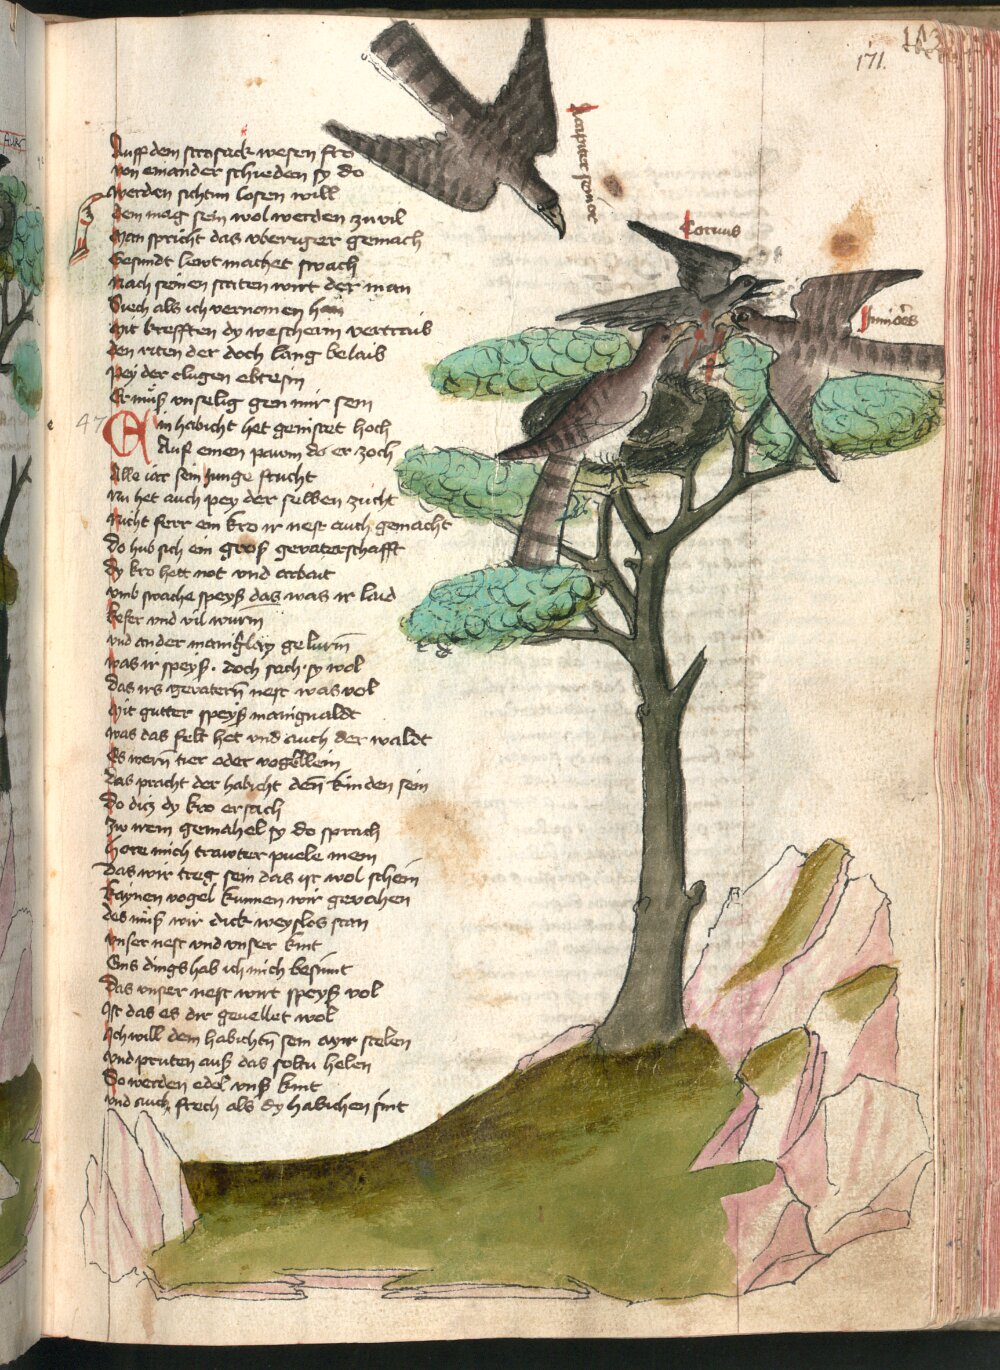 171.
143
Accipiter senior
Corvus
Juniores
Auff dem strosack wesen fro
von einander schieden sy do
werden sichtum losen will
dem mag sein wol werden zu vil
Man spricht das vberiger gemach
Gesundt lewt machet swach
Nach seinen staten wirt der man
Siech als ich vernomen han
Mit krefften dy wescherin vertraib
den riten der doch lang belaib
pey der clugen ebtesin
Er muß vnselig gen mir sein
47
Ein habicht het genistet hoch
Auf einen pawm do er zoch
Alle iar sein junge frucht
Nu het auch pey der selben zucht
Nicht ferr ein kro ir nest auch gemacht
do hub sich ein groß gevaterschafft
dy kro hett not vnd arbait
vmb swache speyß das was ir laid
kefer vnd vil wurm
vnd ander manigslay gewurm
was ir speyß. doch sach sy wol
das irs gevatern nest was vol
Mit gutter speyß manigualdt
was das felt het vnd auch der waldt
Es wern tier oder vogellein
das pracht der habicht den kinden sein
do dicz dy kro ersach
Zw irem gemahel sy do sprach
hore mich trawter puele mein
das wir treg sein das ist wol schein
kaynen vogel kunnen wir gevahen
des muß wir dick weyslos stan
vnser nest vnd vnser kint
Eins dings hab ich mich besunt
das vnser nest wirt speyß vol
Ist das es dir gevellet wol
Ich will dem habichtn sein ayir stelen
vnd pruten auß das soltu helen
So werden edel vnß kint
vnd auch frech als dy habichen sint